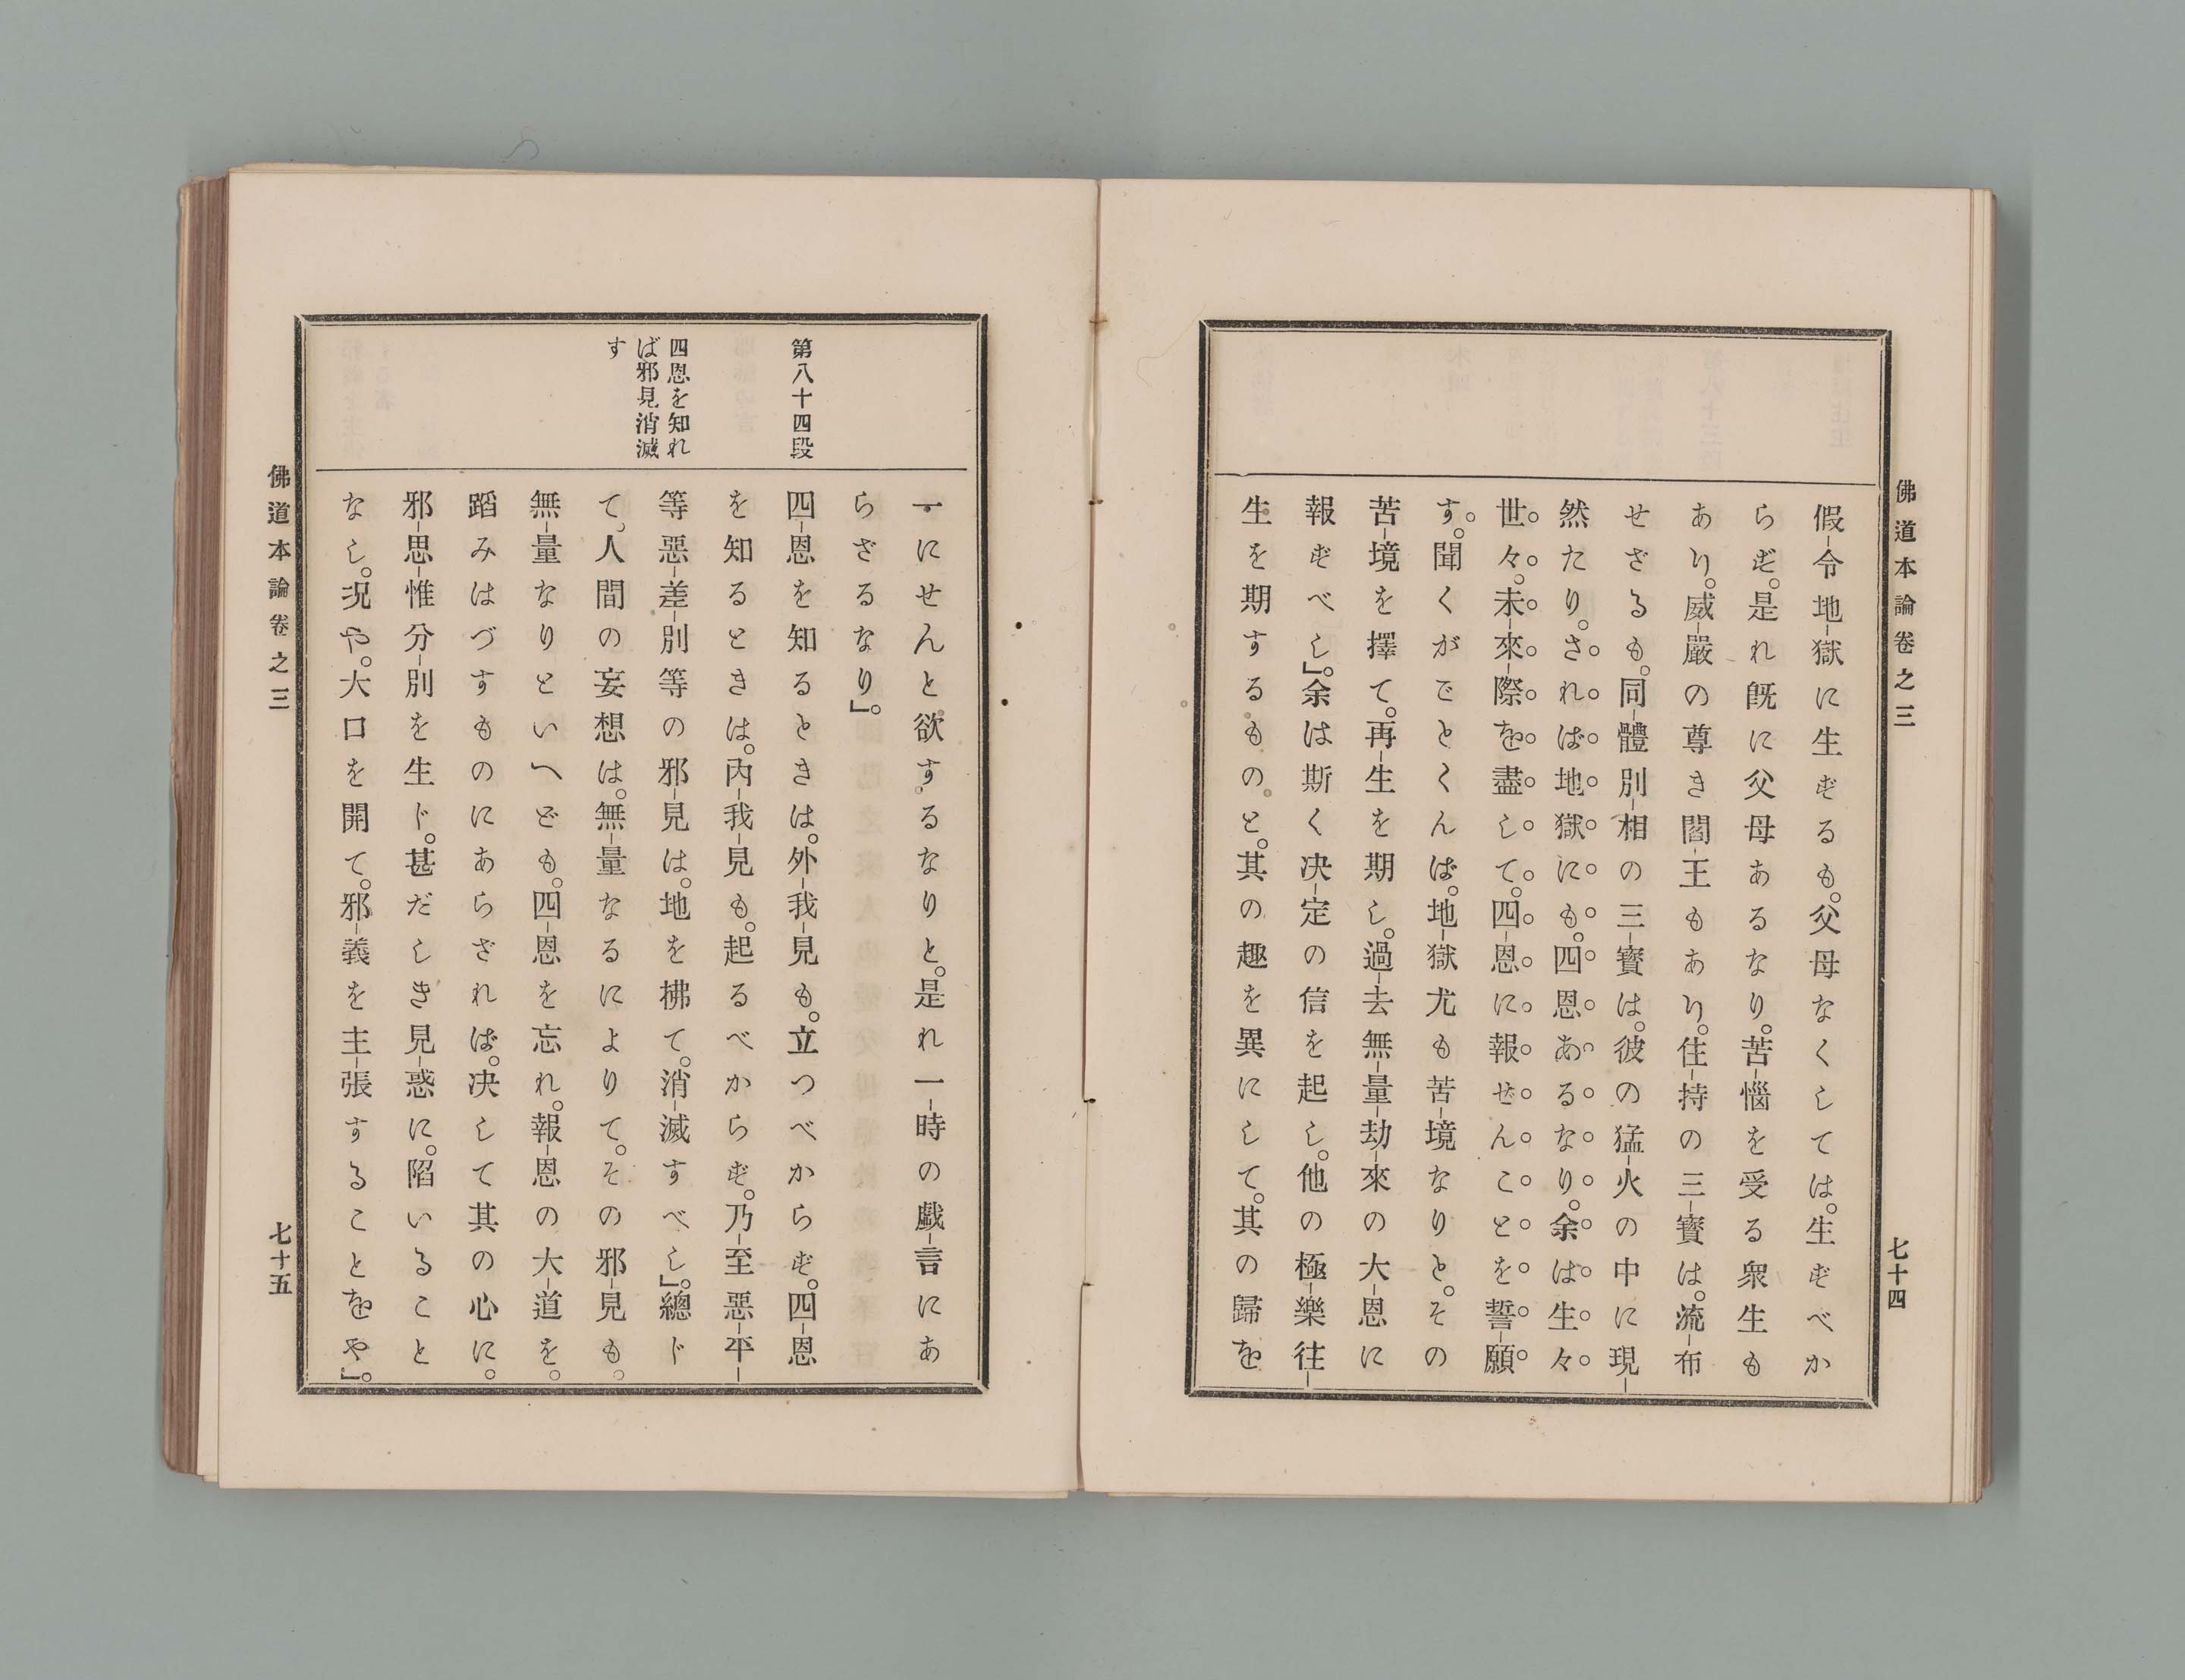 佛道本論卷之三
七十四
假令地獄に生ずるも。父母なくしては。生ずべか
らず。是れ既に父母あるなり。苦惱を受る衆生も
あり。威嚴の尊き閻王もあり。住持の三寳は。流布
せざるも。同體別相の三寳は。彼の猛火の中に現
然たり。されば地獄にも。四恩あるなり。余は生々
世々。未來際を盡して。四恩に報せんことを誓願
す。聞くがごとくんば。地獄尤も苦境なりと。その
苦境を擇て。再生を期し。過去無量劫來の大恩に
報ずべし」。余は斯く决定の信を起し。他の極樂往
生を期するものと。其の趣を異にして。其の歸を
一にせんと欲するなりと。是れ一時の戯言にあ
らざるなり」。
第八十四段
四恩を知るときは。外我見も。立つべからず。四恩
を知るときは。内我見も。起るべからず。乃至惡平
四恩を知れ
ば邪見消滅
す
等惡差別等の邪見は。地を拂て。消滅すべし」。總じ
て。人間の妄想は。無量なるによりて。その邪見も。
無量なりといへども。四恩を忘れ。報恩の大道を。
蹈みはづすものにあらざれば。决して其の心に。
邪思惟分別を生じ。甚だしき見惑に。陷いること
なし。况や。大口を開て。邪義を主張することをや」。
佛道本論卷之三
七十五